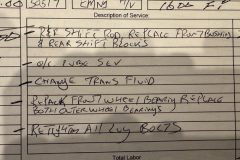 50517 EMM T/V
Description of Service
R&R SHIFT ROD, REPLACE FRONT BUSHING
& REAR SHIFT BLOCKS
O/C LUBE SEV
CHANGE TRANS FLUID
REPACK FRONT WHEEL BEARING REPLACE
BOTH OUTER WHEEL BEARINGS
RETIGHTEN All Lug BOLTS
Total Labor